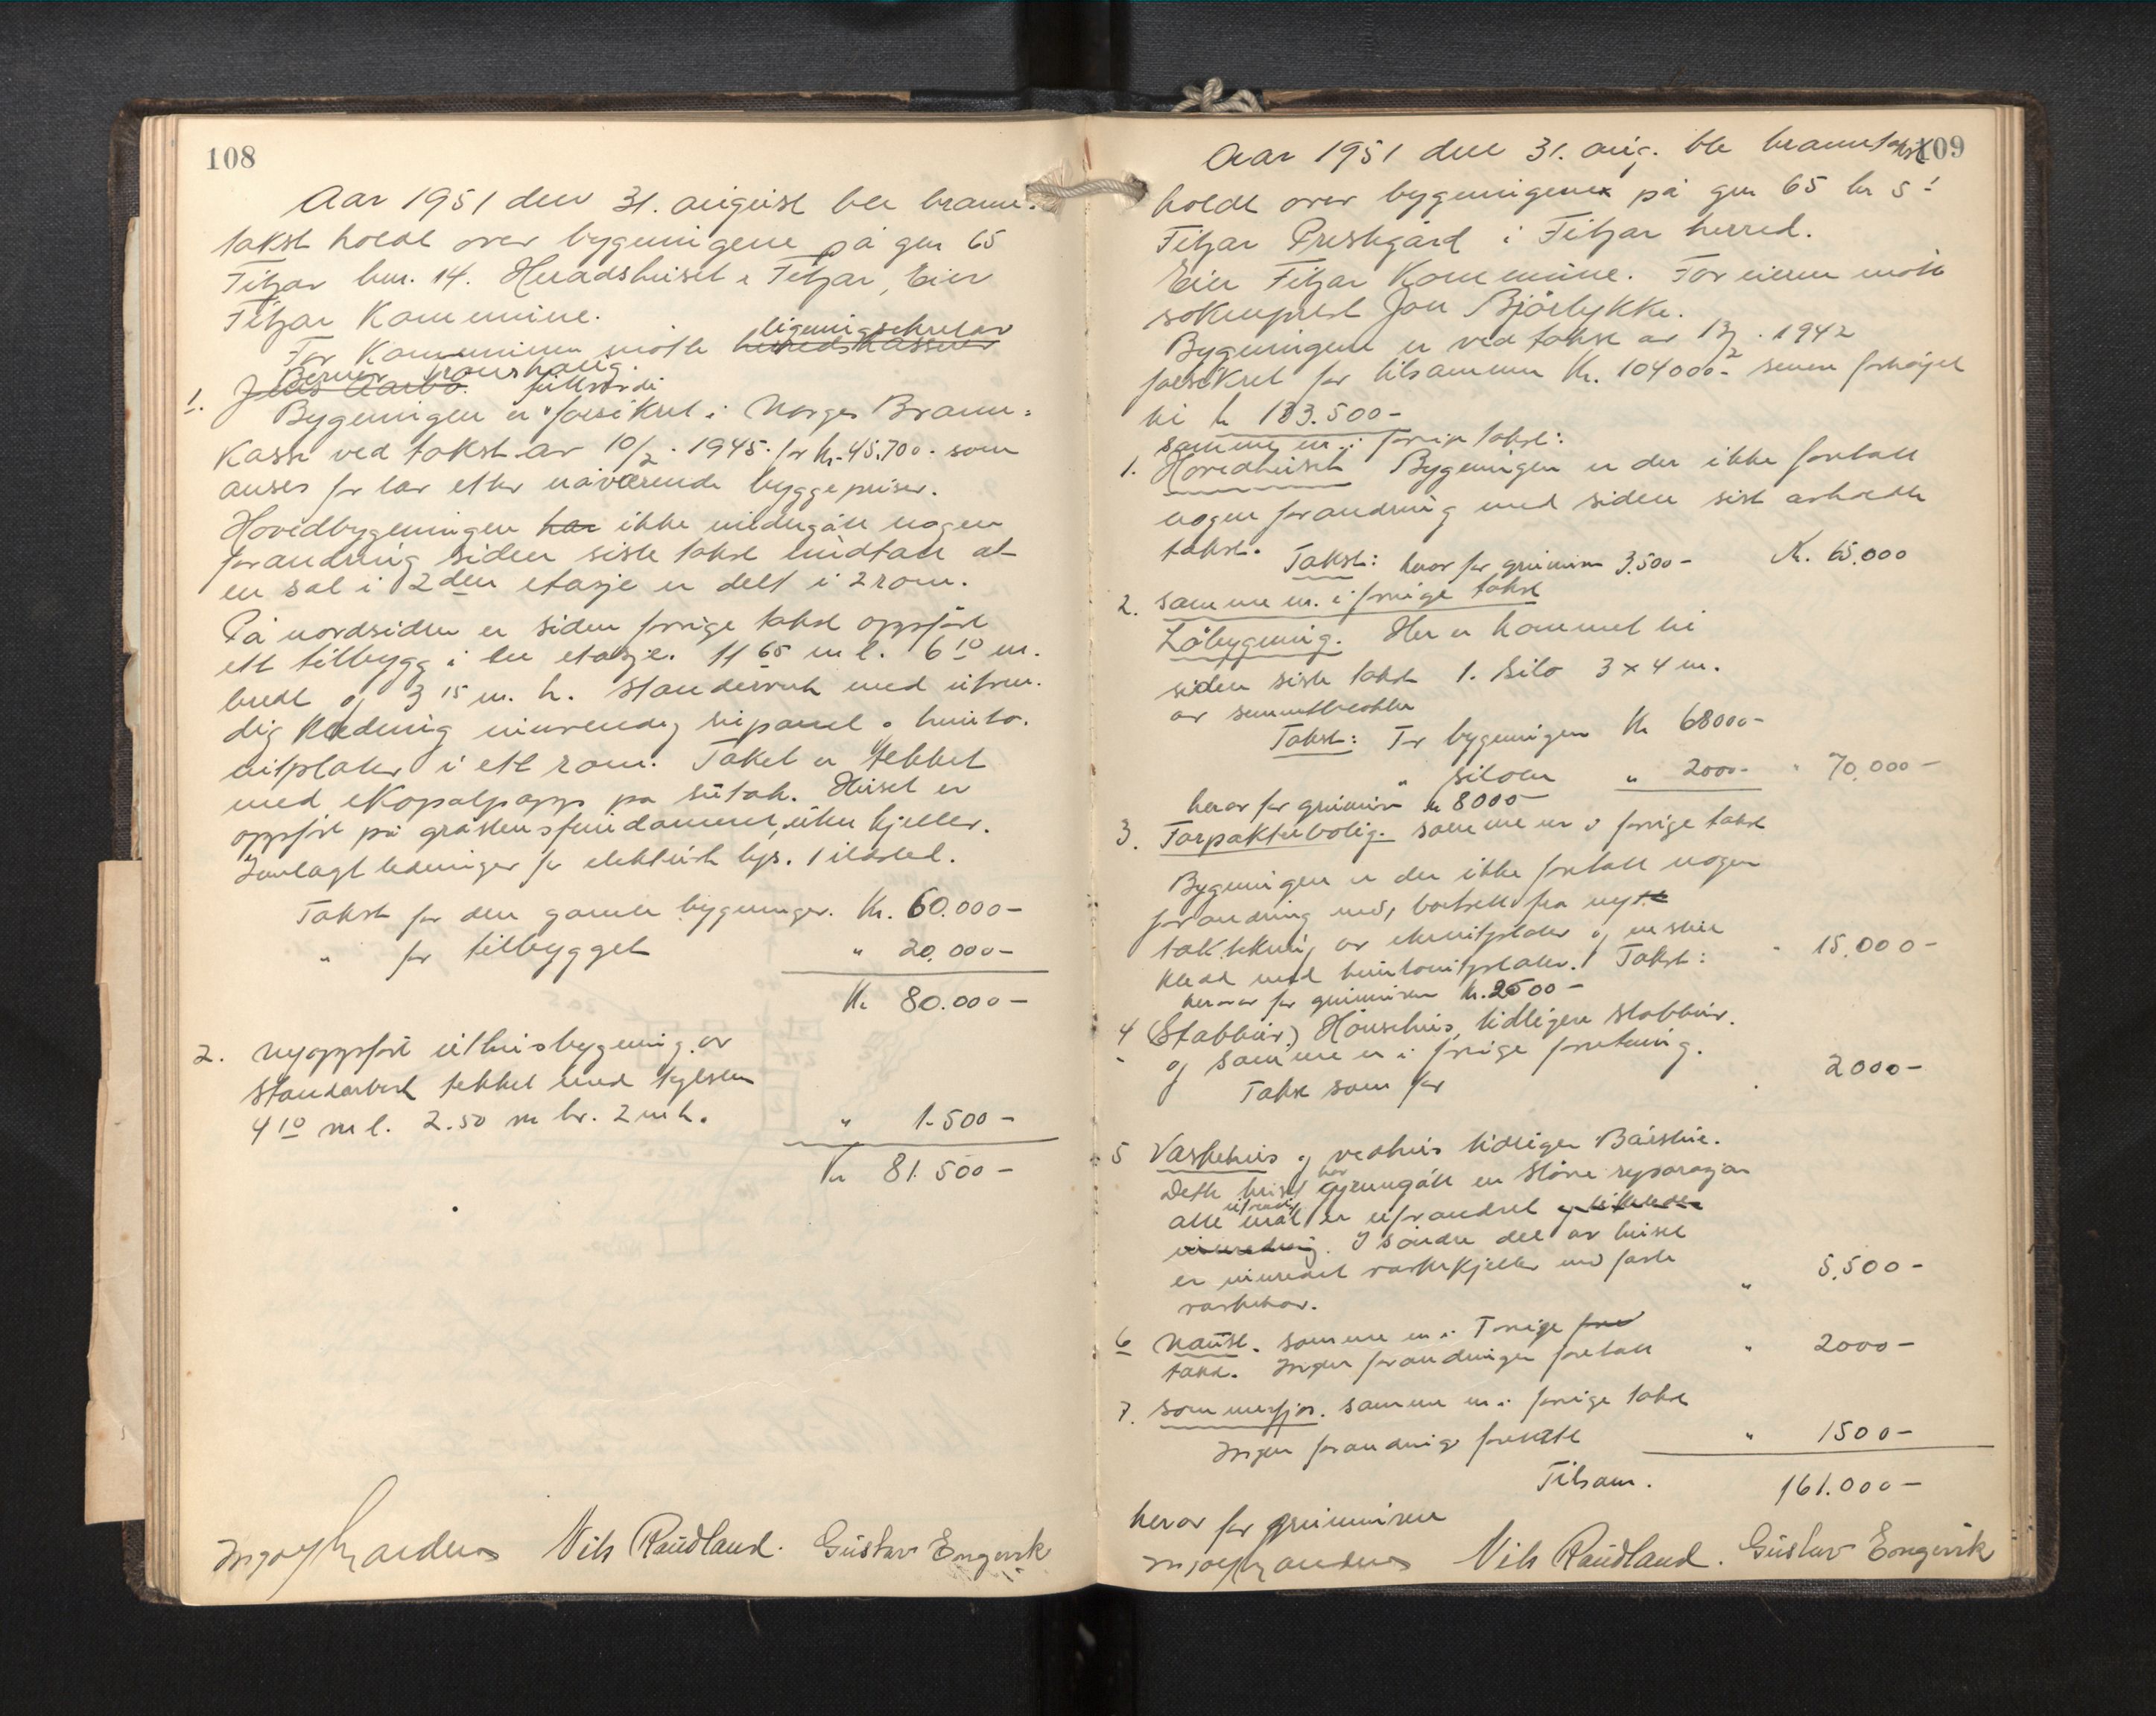 108
Aar 1951 den 31. august ble brann-
takst holdt over bygningene på gnr 65
Fitjar bnr. 14. Heradshuset i Fitjar, Eier
Fitjar Kommune.
For Kommunen møtte herredskasserer ligningssekretær
Jens Aarbø. fullstendi
1. Bygningen er forsikret i Norges Brann-
kasse ved takst av 10/2. 1945. for kr. 45.700. som
anses for lav etter nåværende byggepriser.
Hovedbygningen har ikke undergått nogen
forandring siden siste takst unntatt at
en sal i 2den etasje er delt i 2 rom.
På nordsiden er siden forrige takst oppført
ett tilbygg i en etasje. 11 65 m l. 6 10 m.
bredt og 3 15 m. h. Standerverk med utven-
dig kledning innvendig supanel o hunto-
nitplater i ett rom. Taket er tekket
med ekopalpapp på sutak. Huset er
oppført på gråstensfundament, uten kjeller.
Innlagt ledninger for elektrisk lys. 1 ildsted.
Takst for den gamle bygninger. Kr. 60.000-
" for tilbygget " 20.000-
Kr 80.000-
2. Nyoppført uthusbygning av
standerverk tekket med teglsten
4 10 m l. 2.50 m br. 2 m h. " 1.500-
Kr 81.500-
Nils Raudland. Gustav Engevik
109
Aar 1951 den 31. aug. ble branntakst
holdt over bygningene på gnr 65 br 5!
Fitjar Prestegård i Fitjar herred.
Eier Fitjar Kommune. For eieren møtte
sokneprest Jon Bjørlykke.
Bygningene er ved takst av 13/2. 1942
forsikret for tilsammen Kr. 104000- senere forhøjet
til kr 133.500-
samme nr. i forrige takst:
1. Hovedhuset Bygningen er der ikke foretatt
nogen forandring med siden sist avholdte
takst. Takst: herav for grunnmur 3.500- Kr. 65.000
2. samme nr. i forrige takst
Løbygning. Her er kommet til
siden siste takst 1. silo 3 x 4 m.
av sementblokker
Takst: For bygningen Kr 68000-
" siloen " 2000- " 70.000-
herav for grunnmur kr 8000-
3. Forpakterbolig. samme nr i forrige takst
Bygningen er der ikke foretatt nogen
forandring med, bortsett fra nytt
taktekning av eternitplater og en stue
kledd med huntonitplater. Takst: " 15.000-
herav for grunnmuren kr. 2500-
4 (Stabbur.) Hønsehus, tidligere stabbur.
og samme nr i forrige forretning.
Takst som før " 2000-
5 Vaskehus og vedhus tidligere Båestue.
Dette huset har gjenngått en større reparasjon
alle utvendig mål er uforandret og likeledes
innredning. I søndre del av huset
er innredet vaskekjeller med faste
vaskekar. " 5.500-
6 Naust. samme nr. i Forrige forr
takst. Ingen forandringer foretatt " 2000-
7. sommerfjøs. samme nr. i forrige takst
Ingen forandring foretatt " 1500-
Tilsam. 161.000-
herav for grunnmuren
Nils Raudland. Gustav Engevik